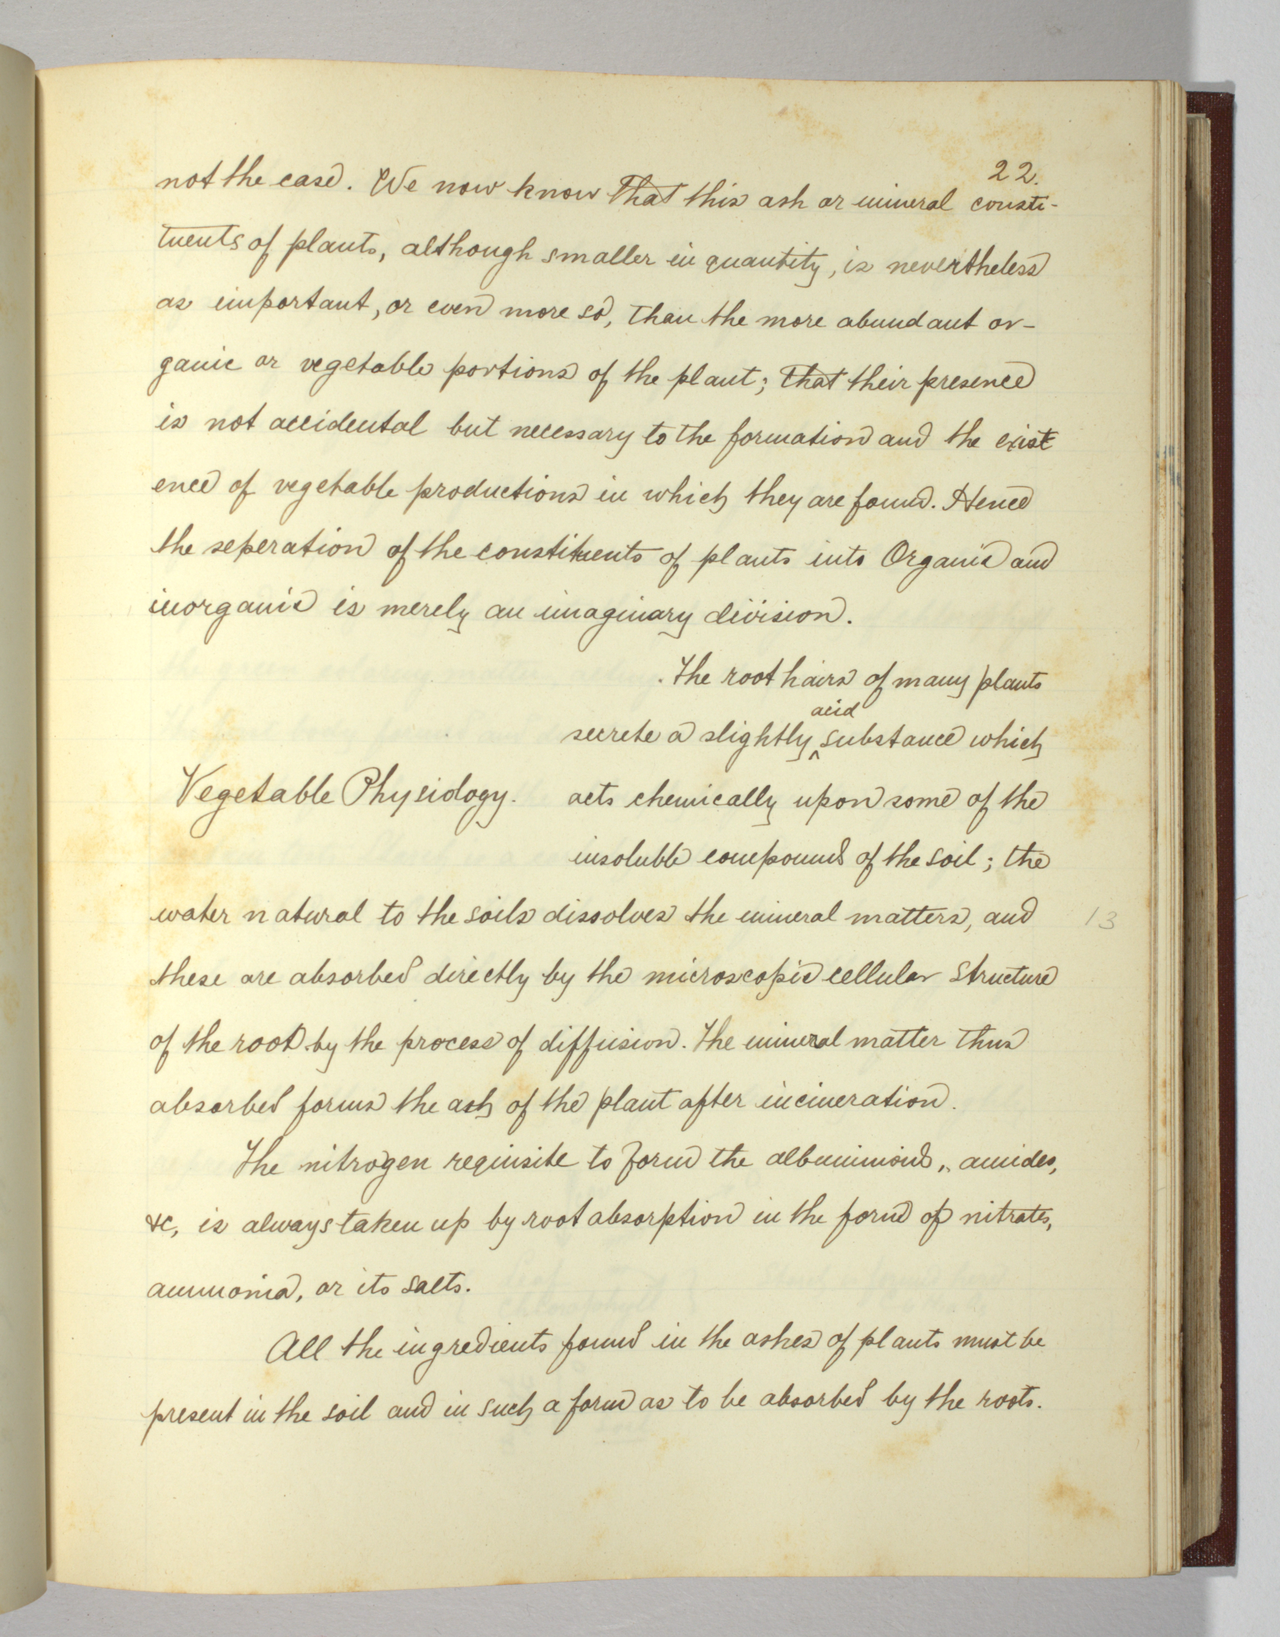 22.
not the case. We now know that this ash or mineral consti-
tuents of plants, although smaller in quantity, is nevertheless
as important, or even more so, than the more abundant or-
ganic or vegetable portions of the plant; that their presence
is not accidental but necessary to the formation and the exist
ence of vegetable productions in which they are found. Hence
the seperation of the constituents of plants into Organic and
inorganic is merely an imaginary division.
The root hairs of many plants
acid
secrete a slightly ^ substance which
Vegetable Physiology. acts chemically upon some of the
insoluble compounds of the soil; the
water natural to the soils dissolves the mineral matters, and
13
these are absorbed directly by the microscopic cellular structure
of the root by the process of diffusion. The mineral matter thus
absorbed forms the ash of the plant after incineration.
The nitrogen requisite to form the albuminoids, amides,
&c, is always taken up by root absorption in the form of nitrates,
ammonia, or its salts.
All the ingredients found in the ashes of plants must be
present in the soil and in such a form as to be absorbed by the roots.